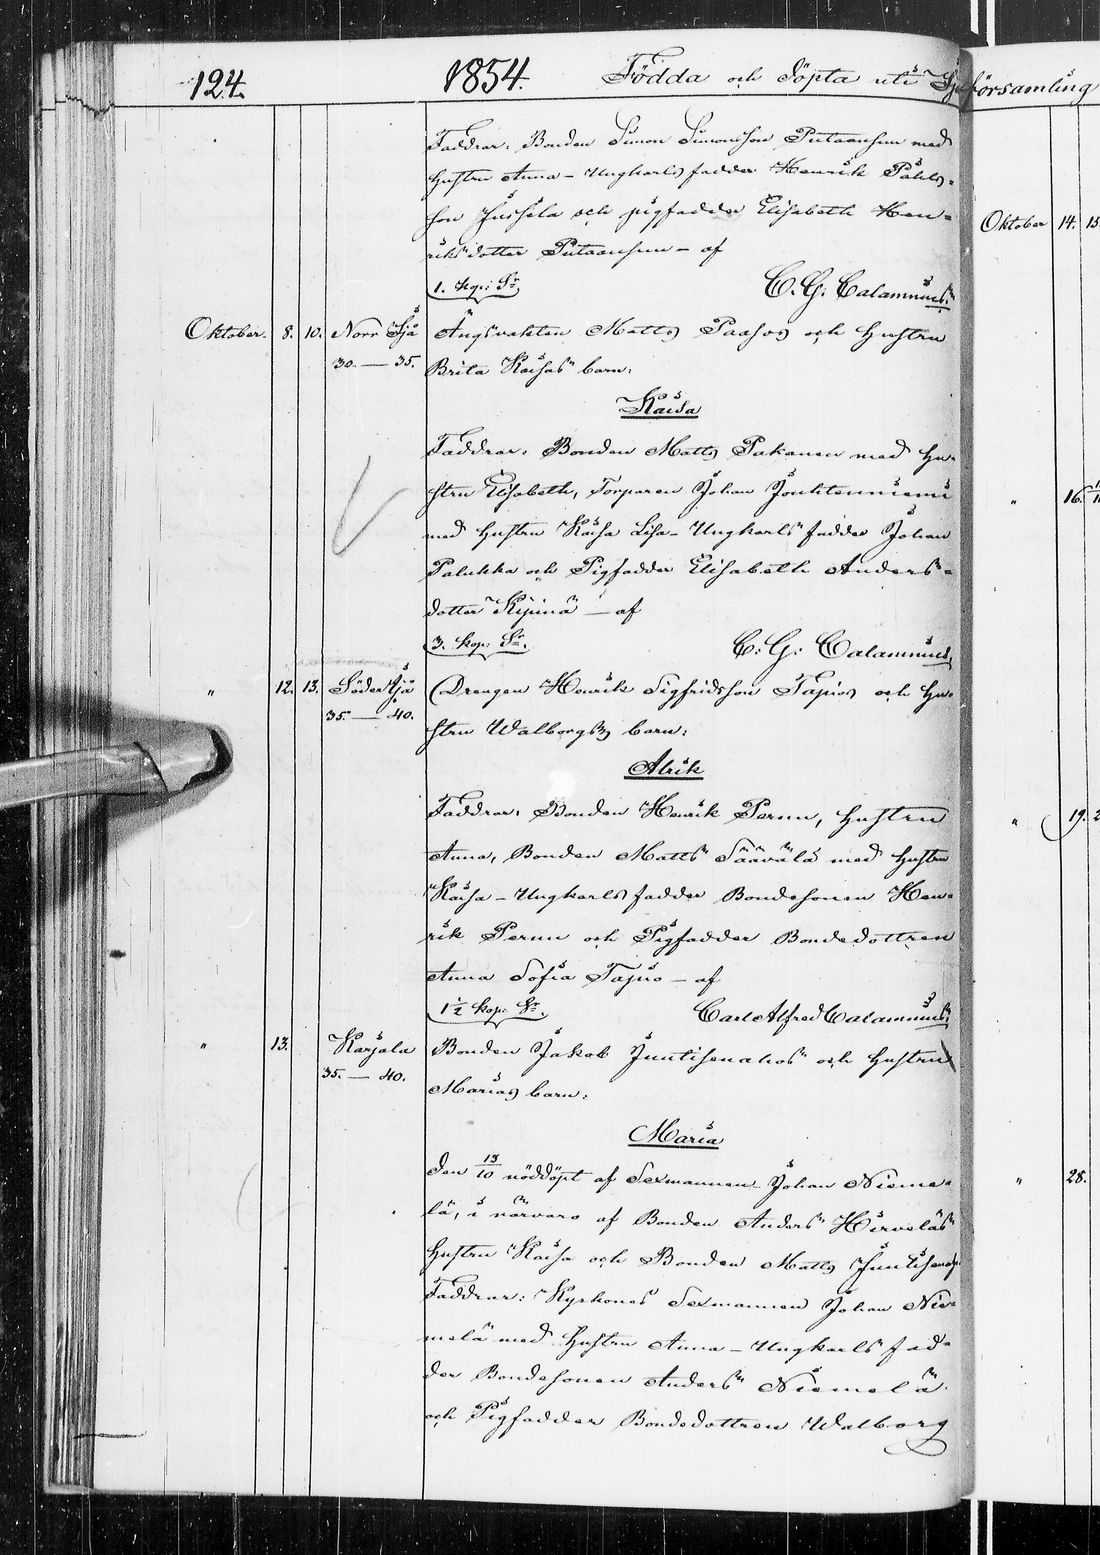 124.
1854.
Födda och döpta uti Ijo församling
Faddrar: Bonden Simon Simonsson Putaansuu med
hustru Anna – Ungkarlsfadder Henrik Påhls-
son Jussila och pigfadder Elisabeth Hen-
riksdotter Putaansuu – af
1. kop: Sr
C. G. Calamnius.
Oktober. 8. 10. Norr Ijå Ängsvakten Matts Paasos och hustru
30. — 35. Brita Kaisas barn:
Kaisa
Faddrar: Bonden Matts Pakanen med hu-
stru Elisabeth, Torparen Johan Jouhtenniemi
med hustru Kaisa Lisa – Ungkarls fadder Johan
Palukka och Pigfadder Elisabeth Anders-
dotter Kipinä – af
3. kop: Sr.
C. G. Calamnius.
" 12. 13. Söder Ijå Drengen Henrik Sigfridsson Tapios och hu-
35. — 40. stru Walborgs barn:
Alrik
Faddrar: Bonden Henrik Pernu, hustru
Anna, Bonden Matts Säävälä med hustru
Kaisa – Ungkarlsfadder Bondesonen Hen-
rik Pernu och Pigfadder Bondedottren
Anna Sofia Tapio – af
1½ kop: Sr.
Carl Alfred Calamnius.
" 13. Karjala Bonden Jakob Juutisenahos och hustru
35. — 40. Marias barn:
Maria
den 13/10 nöddöpt af Sexmannen Johan Nieme-
lä, i närvaro af Bonden Anders Hirveläs
hustru Kaisa och Bonden Matts
Faddrar: Kyrkones Sexmannen Johan Nie-
melä med hustru Anna – Ungkarls fad-
der Bondesonen Anders Niemelä
och Pigfadder Bondedottren Walborg
Oktober 14. 15
" 16.
" 19. 2
" 28.